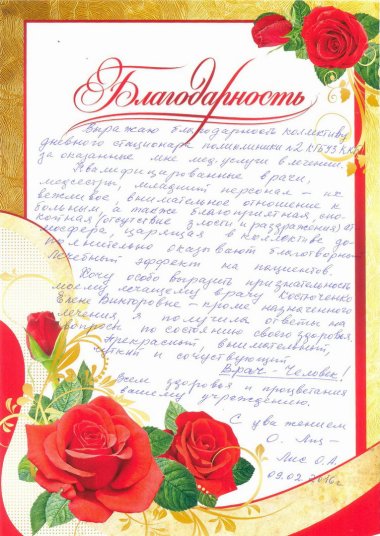 Благодарность
Выражаю благодарность коллективу
дневного стационара поликлиники №2 КГБУЗ ККП
за оказанные мне мед. услуги в лечении.
Квалифицированные врачи,
медсестры, младший персонал – их
вежливое, внимательное отношение к
больным, а также благоприятная, спо-
койная (отсутствие злости и раздражения) ат-
мосфера, царящая в коллективе до-
полнительно оказывают благотворный
лечебный эффект на пациентов.
Хочу особо выразить признательность
моему лечащему врачу Костюченко
Елене Викторовне – кроме назначенного
лечения я получила ответы на
вопросы по состоянию своего здоровья.
Прекрасный, внимательный,
чуткий и сочувствующий
Врач – Человек!
Всем здоровья и процветания
вашему учреждению.
С уважением
О. Лис –
Лис О.А.
09.02.2016г.